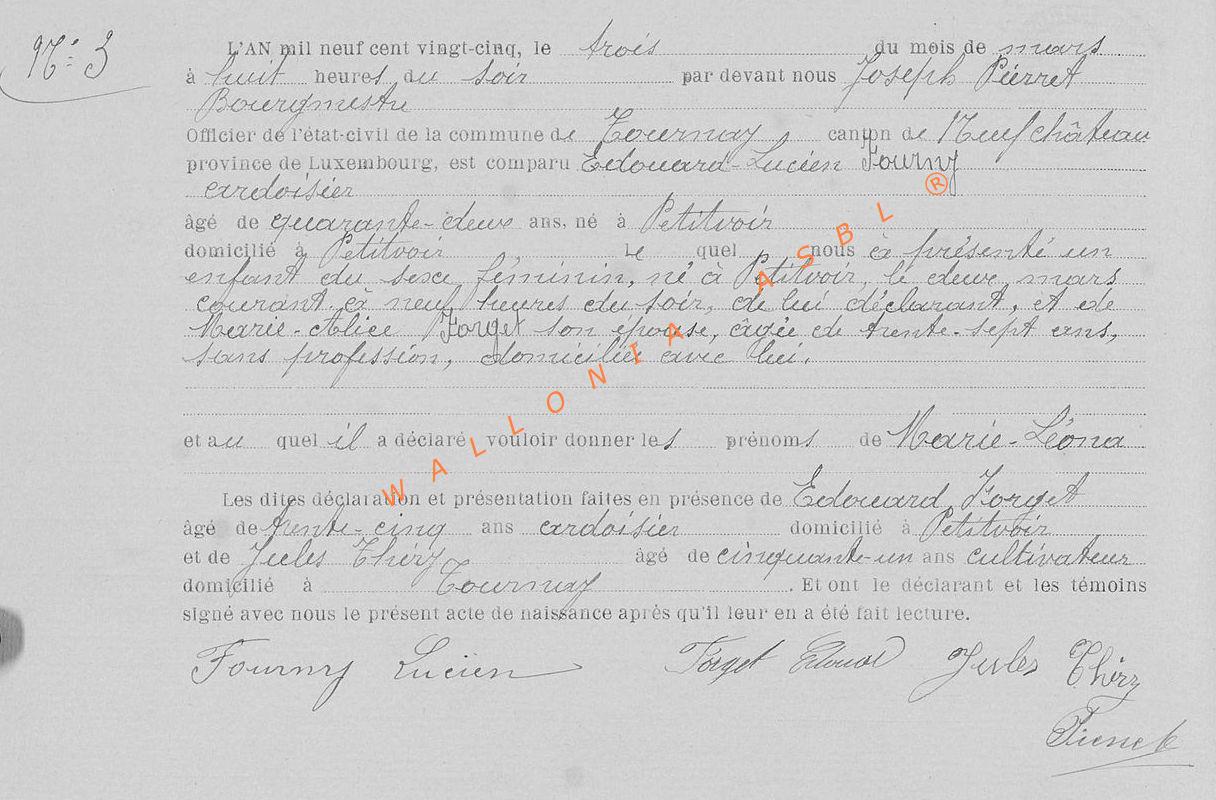 N° 3
L'AN mil neuf cent vingt-cinq, le trois du mois de mars
à huit heures du soir par devant nous Joseph Pierret
Bourgmestre
Officier de l'état-civil de la commune de Tournay, canton de Neufchâteau
province de Luxembourg, est comparu Edouard-Lucien Fourny
ardoisier
âgé de quarante-deux ans, né à Petitvoir
domicilié à Petitvoir Le quel nous à présenté un
enfant du sexe féminin, né à Petitvoir, le deux mars
courant, à neuf heures du soir, de lui déclarant, et de
Marie-Alice Forget son épouse, âgée de trente-sept ans,
sans profession, domiciliée avec lui.
et au quel il a déclaré vouloir donner les prénoms de Marie-Léona
Les dites déclaration et présentation faites en présence de Edouard Forget
âgé de trente-cinq ans ardoisier domicilié à Petitvoir
et de Jules Thiry âgé de cinquante-un ans cultivateur
domicilié à Tournay. Et ont le déclarant et les témoins
signé avec nous le présent acte de naissance après qu'il leur en a été fait lecture.
Fourny Lucien Forget Edouard Jules Thiry
Pierret
WALLONIA ASBL ®